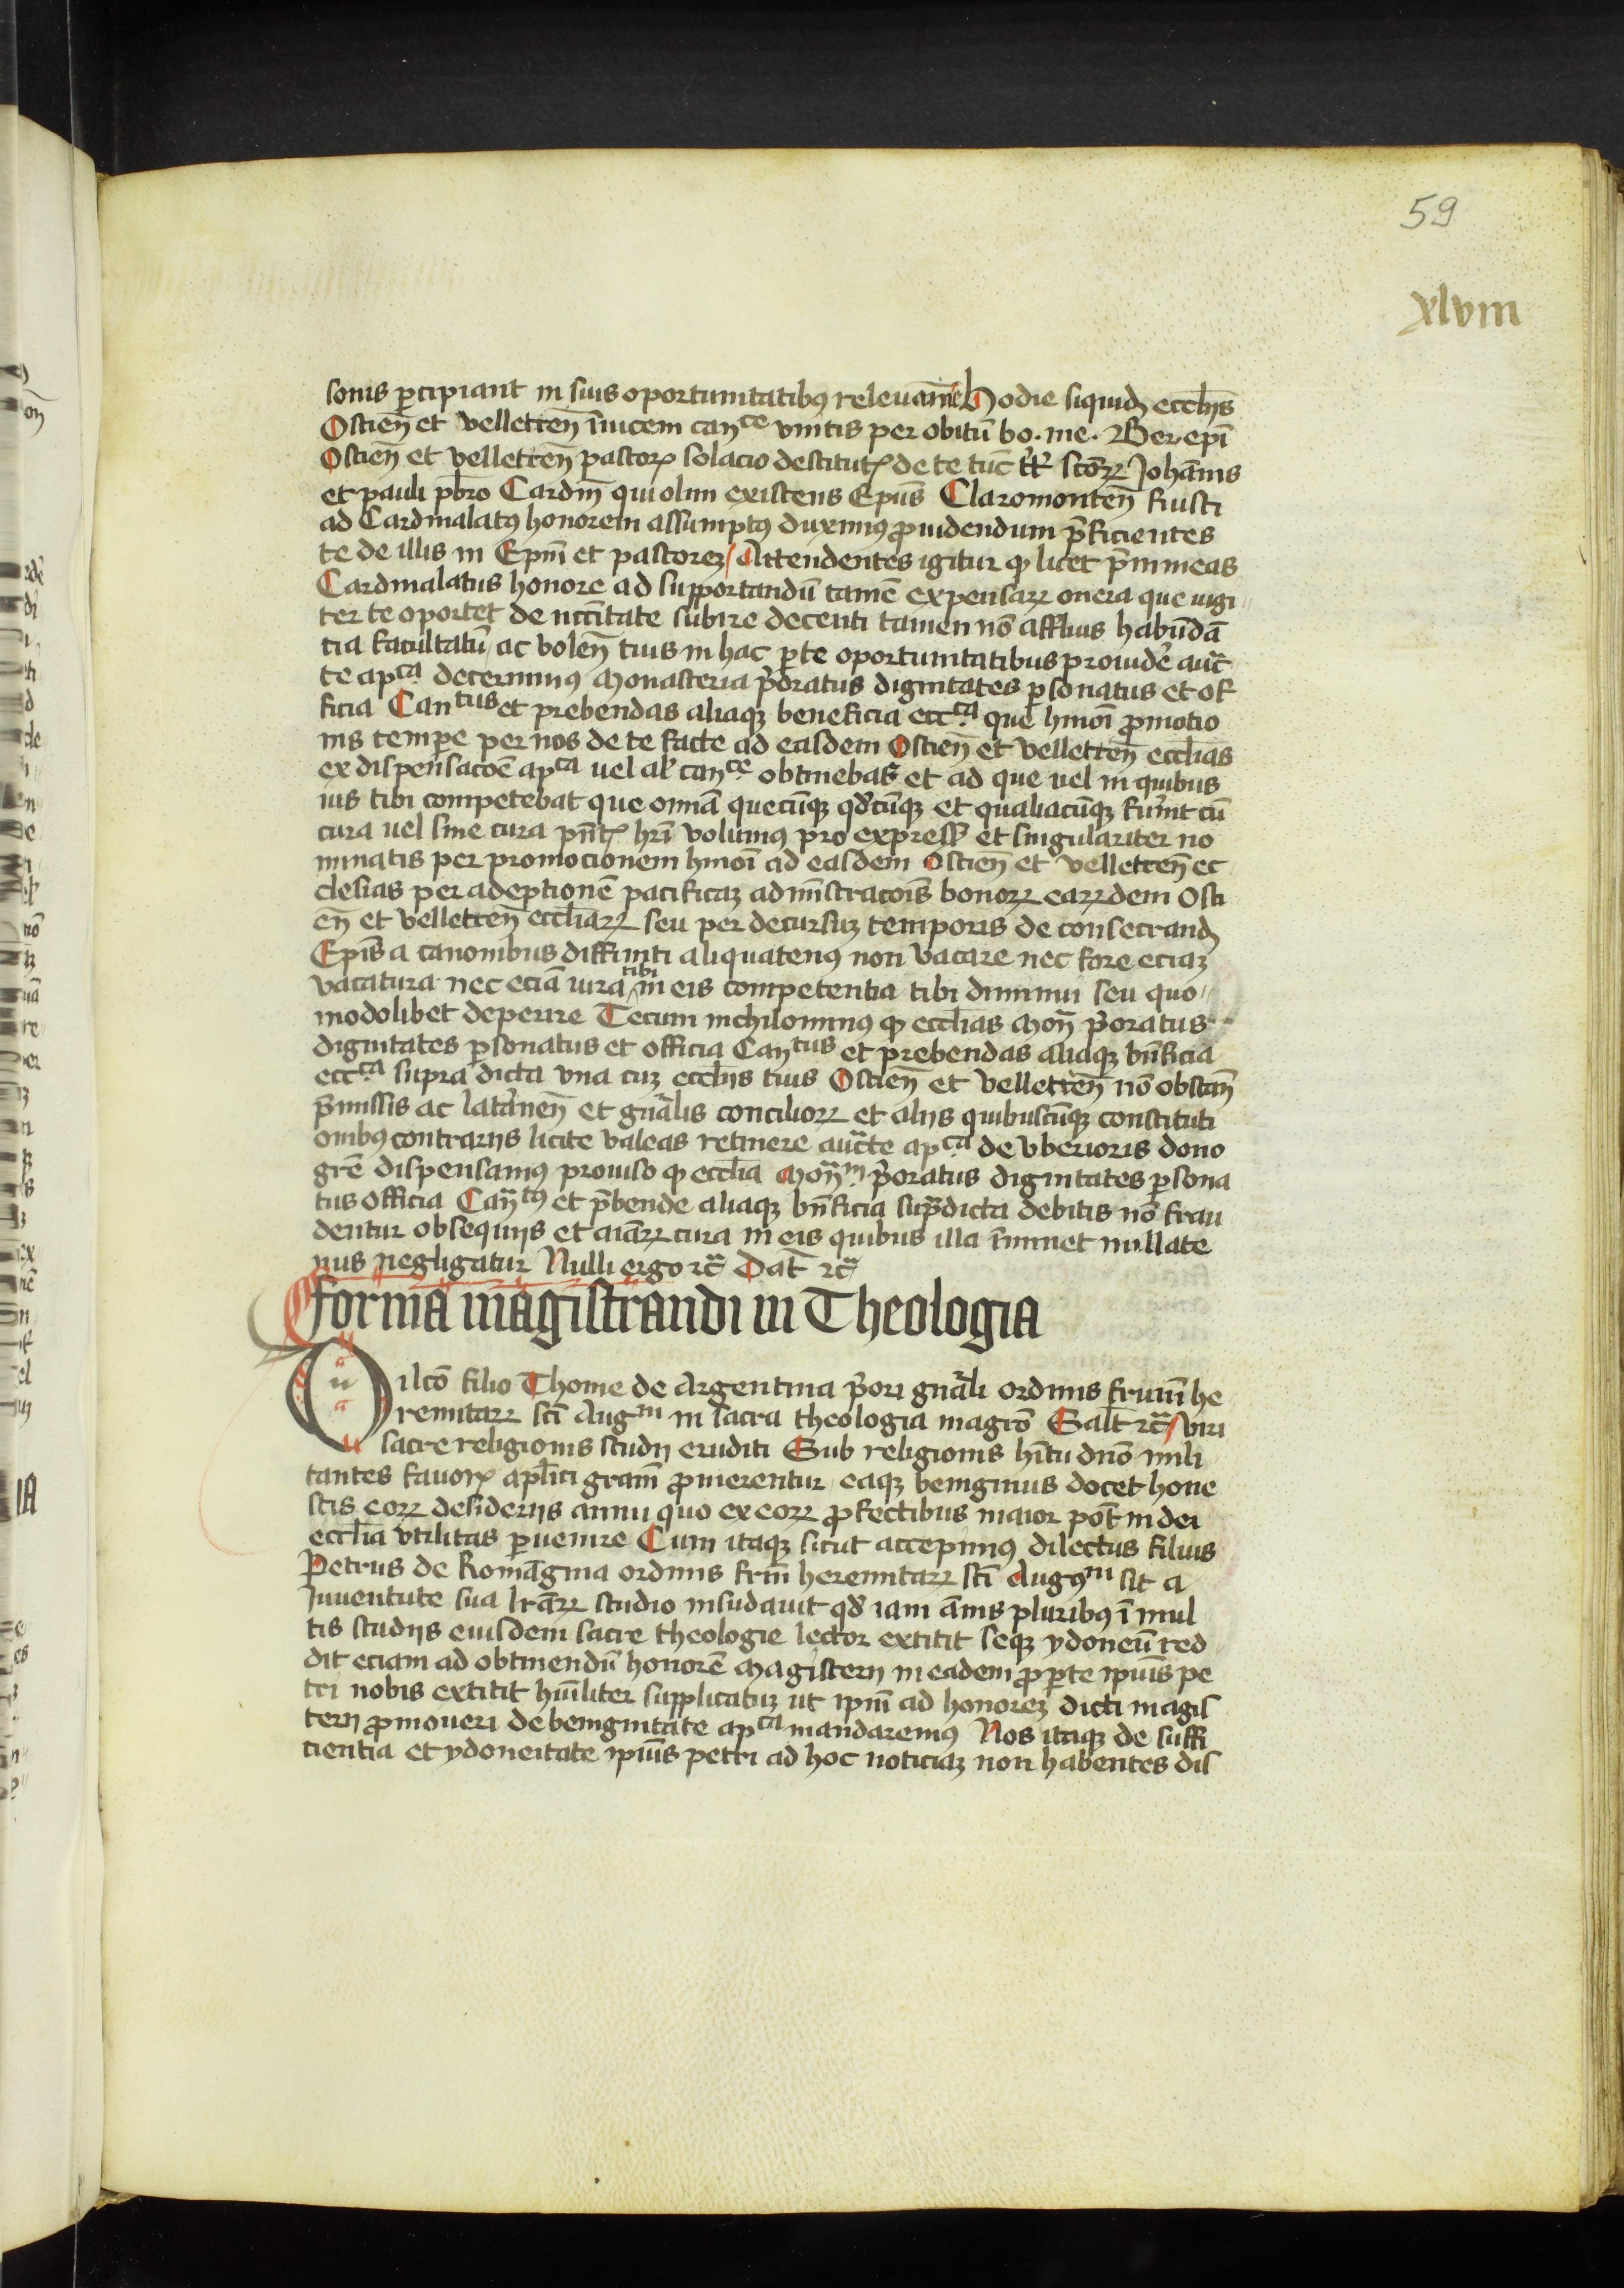 59
xlviii
sonis ꝑcipiant in suis oportunitatibꝰ releuamē Hodie siquidꝫ eccl̄ijs
Ostien̄ et velletren̄ īuicem can^ce vnitis per obitū bo. me. Ber. epī
Ostien̄ et velletren̄ pastorꝭ solacio destitutꝭ de te tūc tt̄ scōꝝ Johānis
et pauli pbr̄o Cardin̄ qui olim existens Ep̄us Claromonten̄ fuisti
ad Cardinalatꝰ honorem assumptꝰ duximꝰ ꝓuidendum p̄ficientes
te de illis in Epm̄ et pastoreꝫ / Attendentes igitur ꝙ licet p̄mineas
Cardinalatus honore ad supportandū tamē expensaꝝ onera que iugi
ter te oportet de nccītate subire decenti tamen nō affluis habūdā
tia facultatū / ac volen̄ tuis in hac ꝑte oportunitatibus prouidē auct̄
te ap^ca decernimꝰ Monasteria p̄oratus dignitates ꝑsonatus et of
ficia Can^tus et prebendas aliaqꝫ beneficia ecc^ca que hmōi ꝓmotio
nis tempe per nos de te facte ad easdem Ostien̄ et velletren̄ eccl̄ias
ex dispensacoē ap^ca uel al̄ can^ce obtinebas et ad que uel in quibus
ius tibi competebat que oīnia quecūqꝫ qd̄cūqꝫ et qualiacūqꝫ fuīnt cū
cura uel sine cura pn̄tꝭ hr̄i volumꝰ pro expressꝭ et singulariter no
minatis per promocionem hmōi ad easdem Ostien̄ et velletren̄ ec
clesias per adeptionē pacificaꝫ admīstracōis bonoꝝ eaꝝdem Osti
en̄ et velletren̄ eccl̄iaꝝ seu per decursuꝫ temporis de consecrandꝫ
Ep̄is a canonibus diffiniti aliquatenꝰ non vacare nec fore eciaꝫ
vacatura nec eciā iura tibi in eis competentia tibi diminui seu quo
modolibet deperire Tecum nichilominꝰ ꝙ eccl̄ias Mon̄ p̄oratus
dignitates ꝑsonatus et officia Can^tus et prebendas aliaqꝫ bn̄ficia
ecc^ca supra dicta vna cuꝫ eccl̄ijs tuis Ostien̄ et velletren̄ nō obstan̄
p̄missis ac lat̄anen̄ et gn̄alis conciliorꝝ et alijs quibuscūqꝫ constituti
onibꝰ contrarijs licite valeas retinere auct̄te ap^ca de vberioris dono
grē dispensamꝰ prouiso ꝙ eccl̄ia Mon̄^m p̄oratus dignitates ꝑsona
tus officia Can̄^tꝰ et p̄bende aliaqꝫ bn̄ficia sup̄dicta debitis nō frau
dentur obsequijs et aīaꝝ cura in eis quibus illa īminet nullate
nus negligatur Nulli ergo ⁊c̄ Dat̄ ⁊c̄
forma magistrandi in Theologia
Dilc̄o filio Thome de Argentina p̄ori gn̄ali ordinis fr̄uum he
remitaꝝ sc̄i Aug^ni in sacra theologia magrō Salt̄ ⁊c̄ / viri
sacre religionis studij eruditi Sub religionis hītu dn̄o mili
tantes fauorꝭ apl̄ici gram̄ ꝓmerentur / eaqꝫ benignius docet hone
stis eoꝝ desiderijs annui quo ex eoꝝ ꝓfectibus maior pot̄ in dei
eccl̄ia vtilitas ꝑuenire Cum itaqꝫ sicut accepimꝰ dilectus filius
Petrus de Romāgnia ordinis frūm heremitaꝝ sc̄i Augꝰ^ni sit a
Juuentute sua lr̄aꝝ studio insudauit qd̄ iam ānis pluribꝰ ī mul
tis studijs eiusdem sacre theologie lector extitit seqꝫ ydoneū red
dit eciam ad obtinendū honorē Magisterij in eadem ꝓ ꝑte ipiūs pe
tri nobis extitit hūiliter supplicatuꝫ ut ipm̄ ad honoreꝫ dicti magis
terij ꝓmoueri de benignitate ap^ca mandaremꝰ Nos itaqꝫ de suffi
cientia et ydoneitate ipiūs petri ad hoc noticiaꝫ non habentes dis